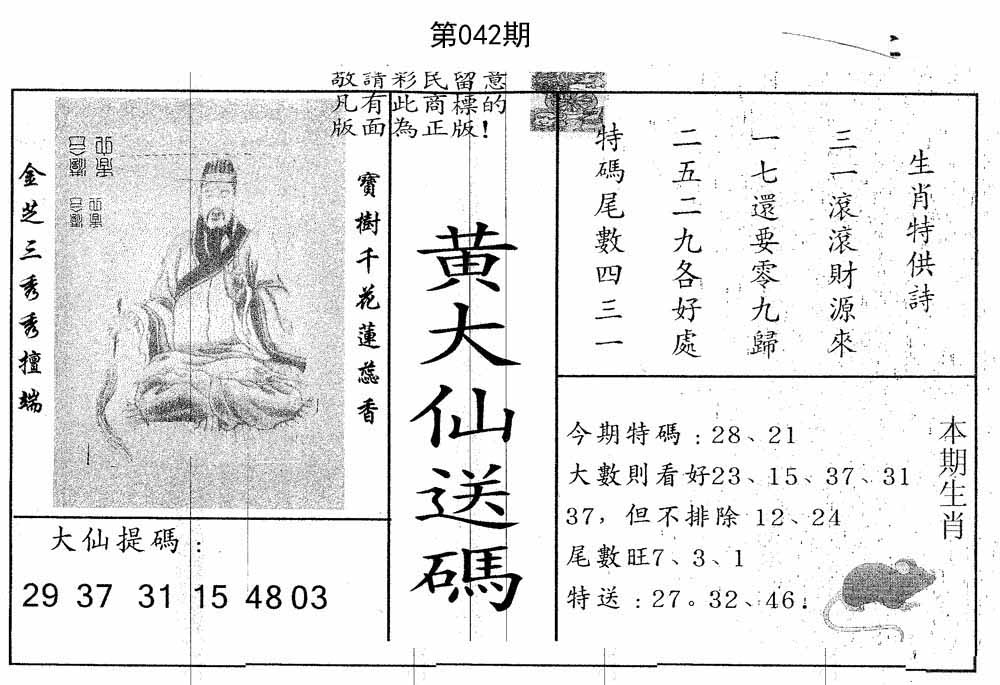 第042期
敬請彩民留意
凡有此商標的
版面為正版!
金芝三秀秀擅端
寶樹千花蓮蕊香
黃大仙送碼
生肖特供詩
三一滾滾財源來
一七還要零九歸
二五二九各好處
特碼尾數四三一
大仙提碼:
29 37 31 15 48 03
本期生肖
今期特碼:28、21
大數則看好23、15、37、31
37，但不排除 12、24
尾數旺7、3、1
特送:27。32、46.